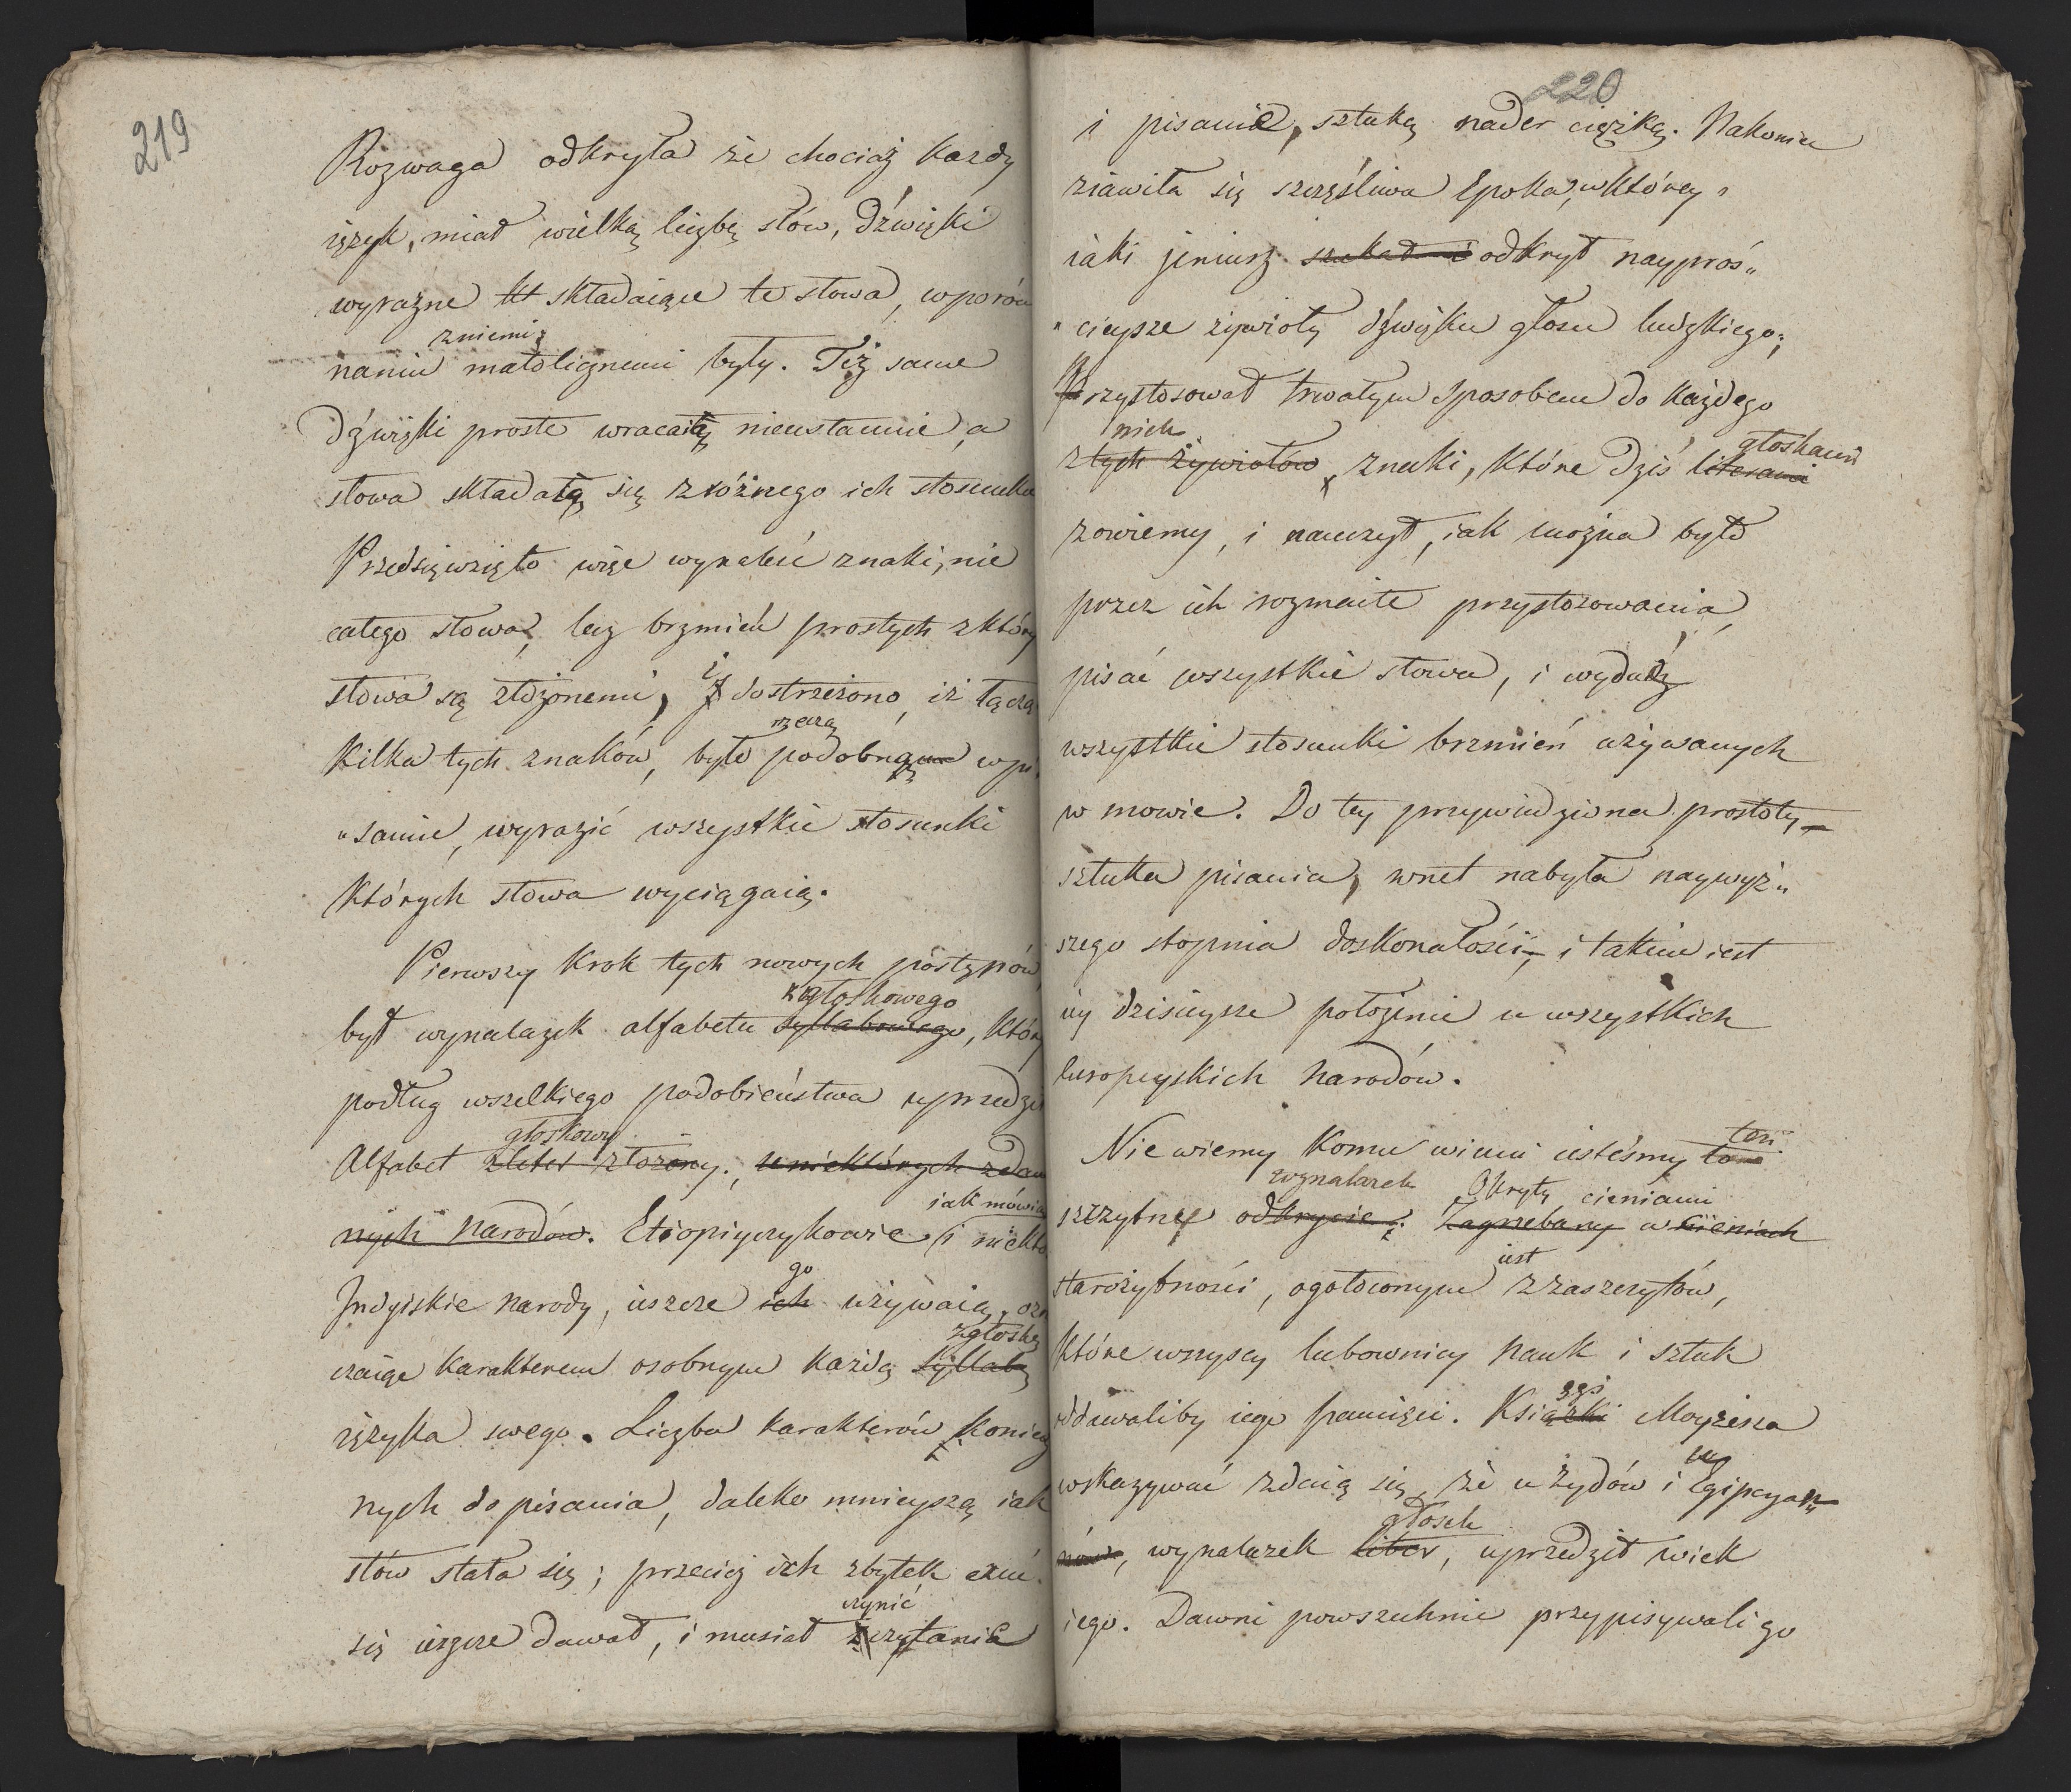 219
Rozwaga odkryła że chociaż każdy
ięzyk, miał wielką liczbę słów, dźwięki
wyraźne składaiące te słowa, wporów
zniemi
naniu małolicznemi były. Też same
dźwięki proste wracaią nieustannie, a
słowa składaią się z różnego ich stosunku
Przedsięwzięto więc wynaleść znaki, nie
całego słowa, lecz brzmień prostych z któr
słowa są złożonemi, i dostrzeżono, iż łącz
rzeczą
kilka tych znaków, było podobną w pi
"sanie, wyrazić wszystkie stosunki
których słowa wyciągaią.
Pierwszy krok tych nowych postępów
zgłoskowego
był wynalazek alfabetu syllabowego, któr
podług wszelkiego podobieństwa uprzedzi
głoskowy
Alfabet zliter złożony., u niektórych zdaw
iak mówi
nych narodów. Etiopiyczykowie i niekt
go
Indyiskie narody, ieszcze ich używaią, oz
zgłoskę
czaiąc karakterem osobnym każdą syllabę
ięzyka swego. Liczba karakterów koniec
nych do pisania, daleko mnieyszą iak
słów stała się; przecież ich zbytek czuć
czynić
się ieszcze dawał, i musiał z czytania
220
i pisania, sztukę nader ciężką. Nakoniec
ziawiła się szczęśliwa Epoka, w którey
iaki jeniusz szukał i odkrył nayproś"
"cieysze żywioły dźwięku głosu ludzkiego;
Przystosował trwałym sposobem do każdego
nich głoskami
z tych żywiołów, znaki, które dziś literami
zowiemy, i nauczył, iak można było
przez ich rozmaite przystosowania,
pisać wszystkie słowa, i wydadź
wszystkie stosunki brzmień używanych
w mowie. Do tey przywiedziona prostoty
sztuka pisania, wnet nabyła naywyż"
szego stopnia doskonałości, i takiem iest
iey dzisieysze położenie u wszystkich
Europeyskich narodów.
ten
Nie wiemy komu winni iesteśmy to
wynalazek Okryty cieniami
szczytny odkrycie. Zagrzebany w cieniach
iest
starożytności, ogołoconym z zaszczytów,
które wszyscy lubownicy nauk i sztuk
oddawaliby iego pamięci. Książki Moyżesza
wskazywać zdaią się, że u żydów i Egipcyan
głosek
nów, wynalazek liter, uprzedził wiek
iego. Dawni powszechnie przypisywali go